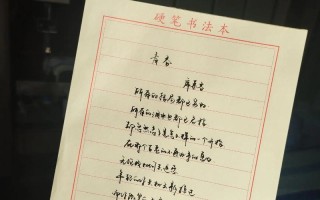 硬笔书法本
青春
席慕蓉
所有的结局都已写好
所有的泪水也都已启程
却忽然忘了是怎么样的一个开始
在那个古老的不再回来的夏日
无论我如何去追索
年轻的你只如云影掠过